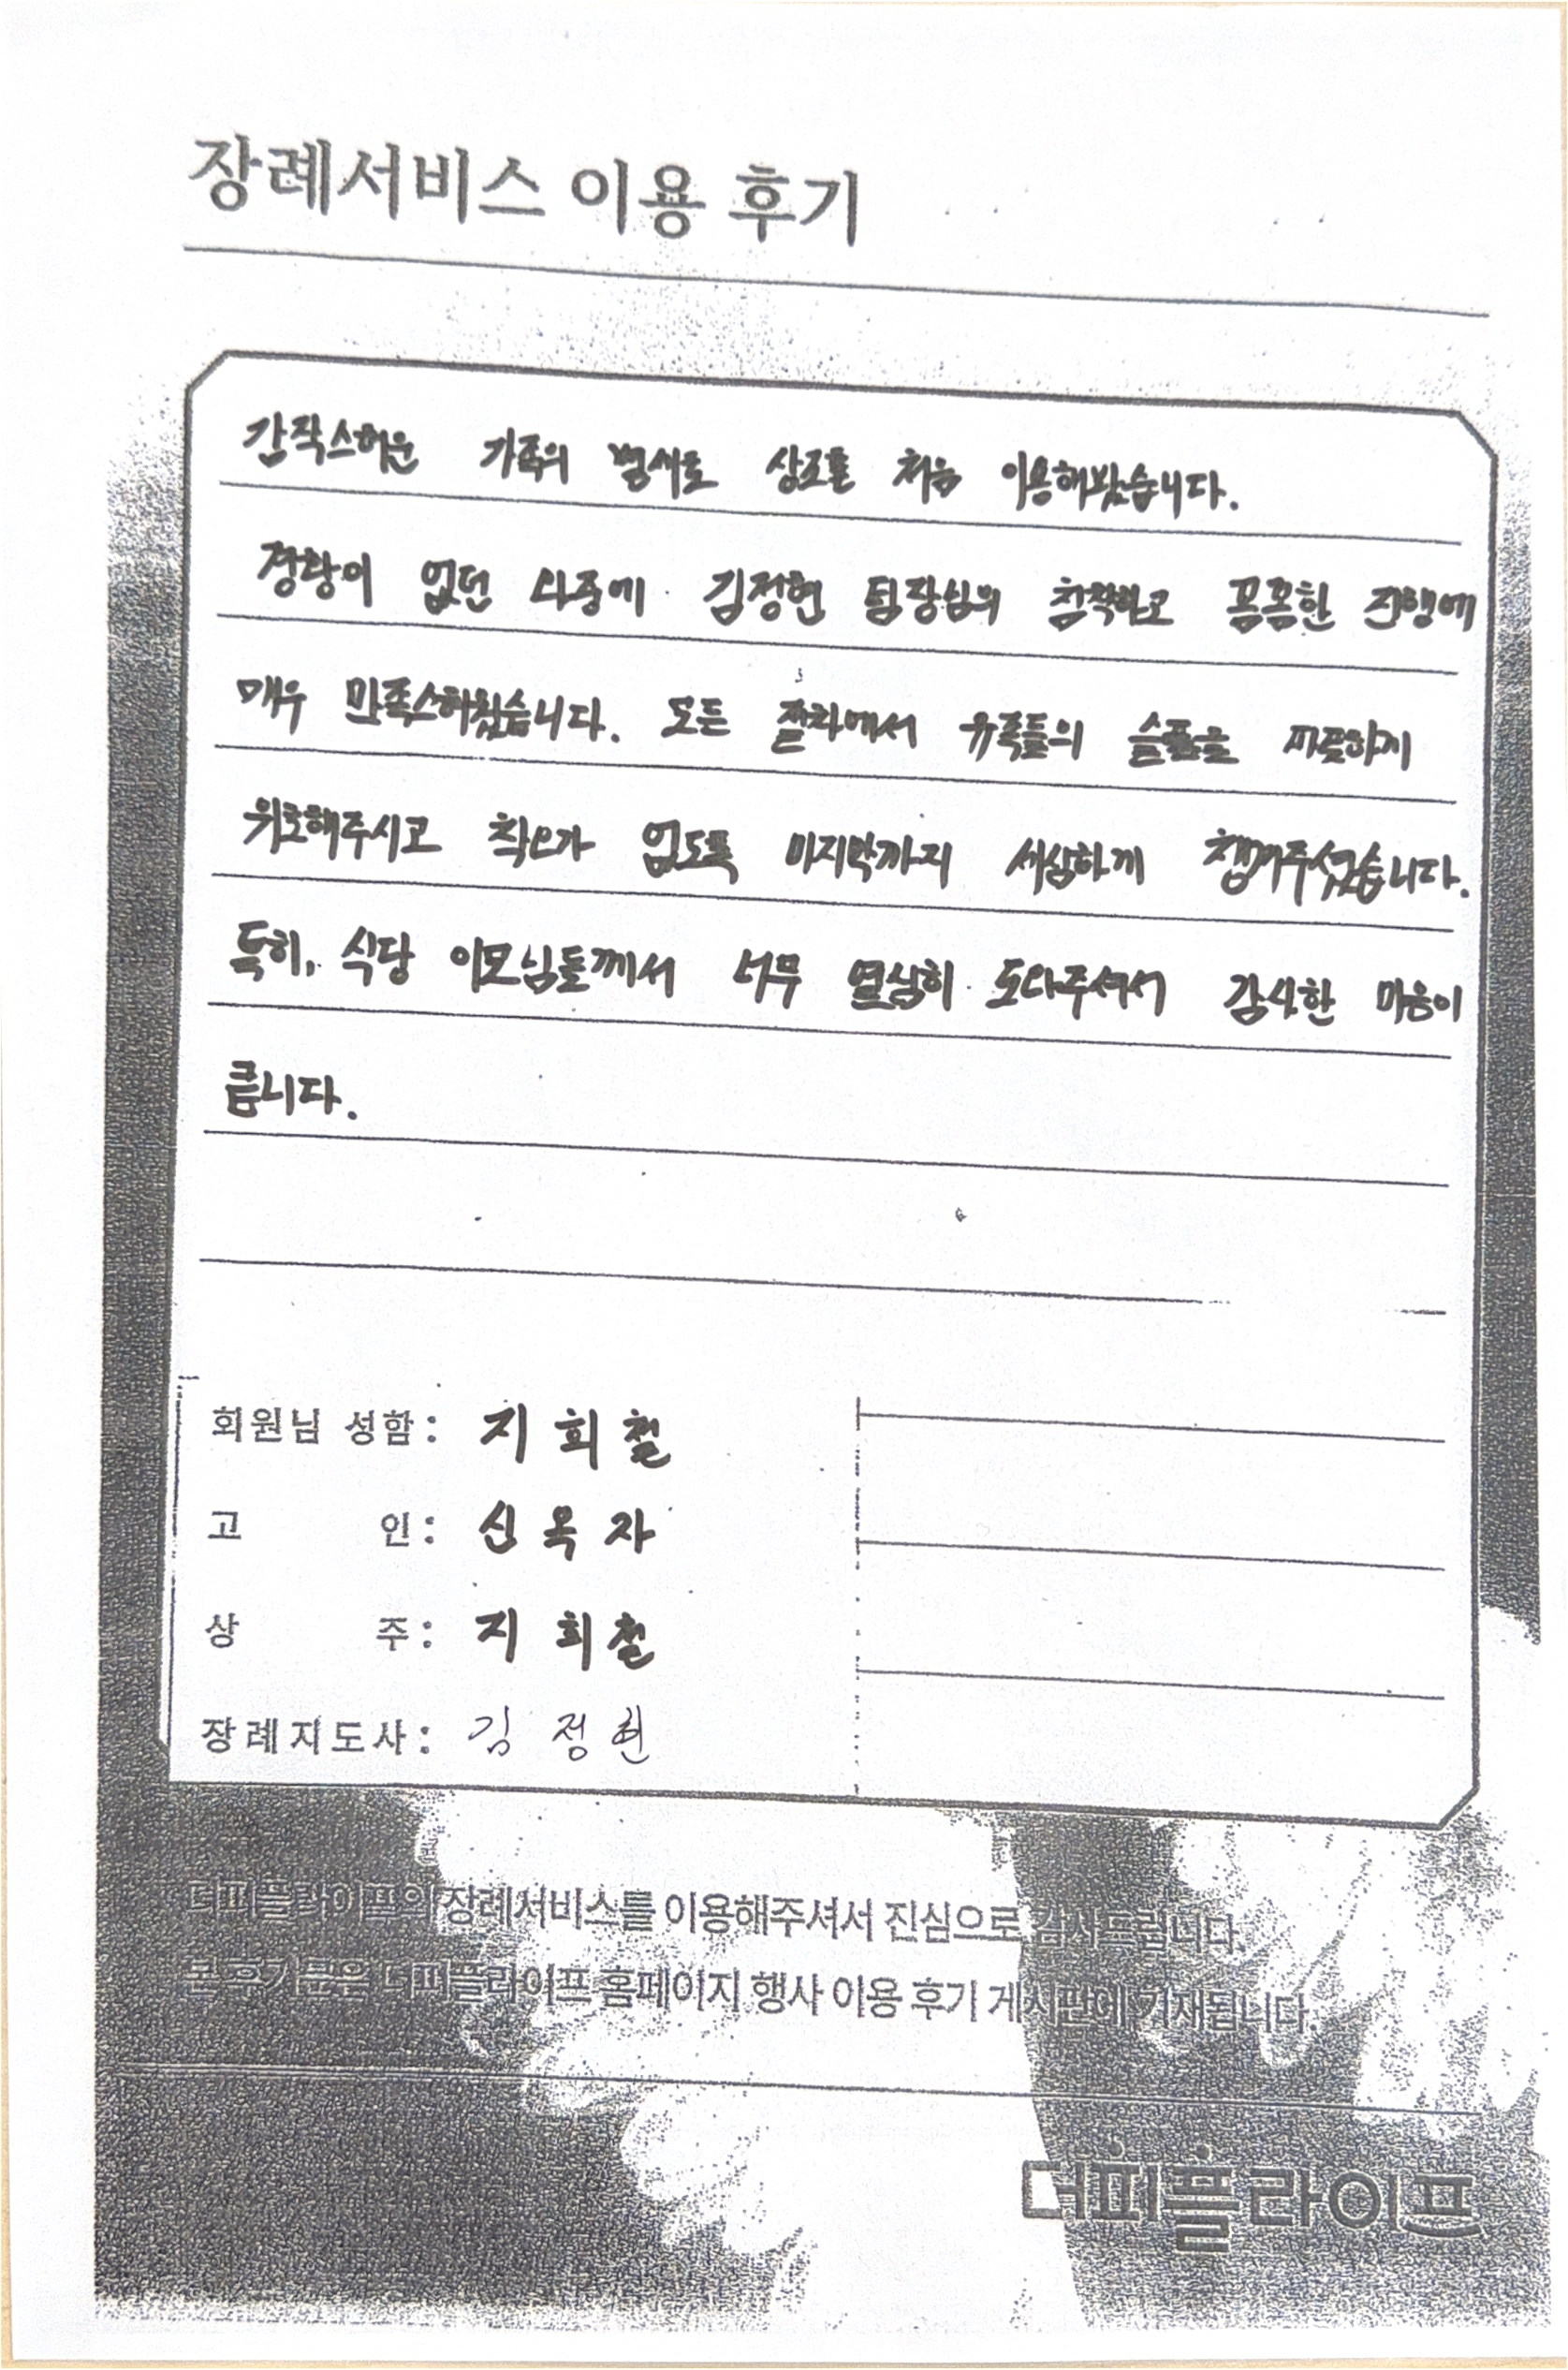 장례서비스 이용 후기
갑작스러운 가족의 별세로 상조를 처음 이용해봤습니다.
경황이 없던 와중에 김정현 팀장님의 침착하고 꼼꼼한 진행에
매우 만족스러웠습니다. 모든 절차에서 유족들의 슬픔을 따뜻하게
위로해주시고 착오가 없도록 마지막까지 세심하게 챙겨주셨습니다.
특히, 식당 이모님들께서 너무 열심히 도와주셔서 감사한 마음이
큽니다.
회원님 성함: 지희철
고 인: 신옥자
상 주: 지희철
장례지도사: 김정현
더피플라이프의 장례서비스를 이용해주셔서 진심으로 감사드립니다.
본 후기문은 더피플라이프 홈페이지 행사 이용 후기 게시판에 기재됩니다.
더피플라이프